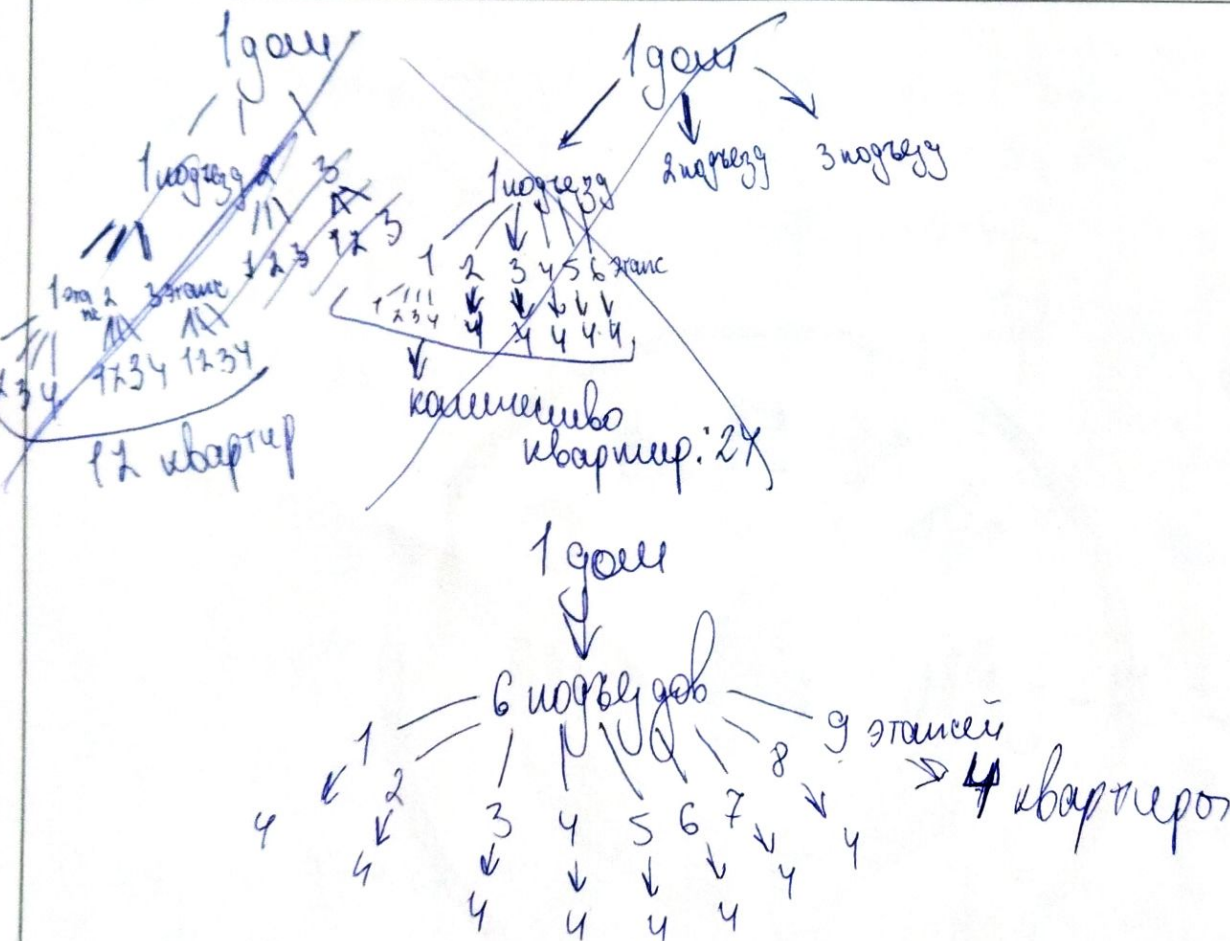 1 дом
1 подъезд 2 3
1 этапе 2 3 этапс 1 2 3 1 2 3
2 3 4 1 2 3 4 1 2 3 4
12 квартир
1 дом
1 подъезд 2 подъезд 3 подъезд
1 2 3 4 5 6 этапс
1 2 3 4 4 4 4 4 4
количество
квартир: 24
1 дом
6 подъездов
1 2 3 4 5 6 7 8 9 этажей
4 4 4 4 4 4 4 4 4 квартиры